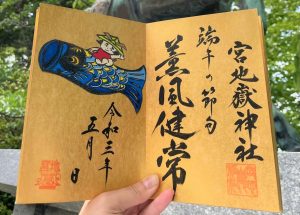 宮地嶽神社
端午の節句
薫風健常
令和三年
五月 日